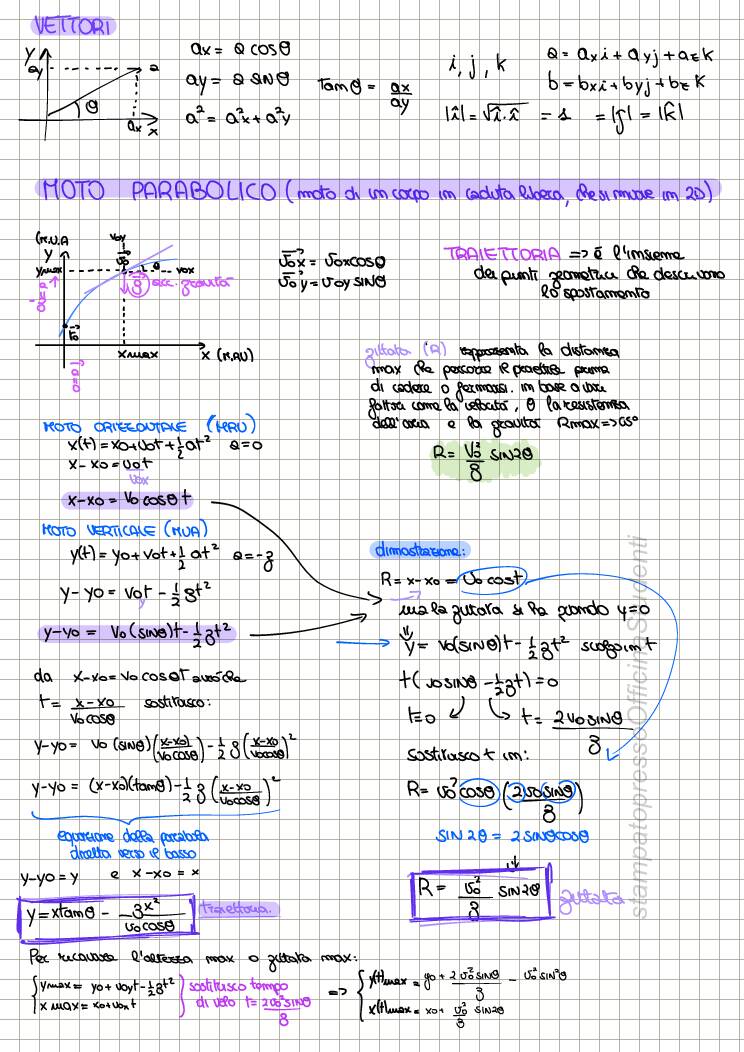 VETTORI
y
ay
a
θ
ax
x
ax = a cosθ
ay = a sinθ
a² = a²x + a²y
Tanθ = ax/ay
i, j, k
|î| = √î·î = 1 = |ĵ| = |k̂|
a = axi + ayj + azk
b = bxi + byj + bzk
MOTO PARABOLICO (moto di un corpo in caduta libera, che si muove in 2D)
(M.U.A
y
ymax
voy
v0
θ
vox
g acc. gravità
a=0
xmax
x (M.R.U)
v0x = voxcosθ
v0y = voy sinθ
TRAIETTORIA => è l'insieme
dei punti geometrici che descrivono
lo spostamento
gittata (R) rappresenta la distanza
max che percorre il proiettile prima
di cadere o fermarsi. in base a vari
fattori come la velocità, θ la resistenza
dell'aria e la gravità
R = v0²/g sin2θ
MOTO ORIZZONTALE (MRU)
x(t) = x0 + v0t + ½at² a=0
x - x0 = v0t
vox
x-x0 = v0 cosθ t
MOTO VERTICALE (MUA)
y(t) = y0 + v0t + ½at² a=-g
y - y0 = v0t - ½gt²
y
y-y0 = v0 (sinθ)t - ½gt²
dimostrazione:
R = x-x0 = v0 cost
ma la gittata si ha quando y=0
y = v0(sinθ)t - ½gt² svolgo in t
t(v0sinθ - ½gt) = 0
t=0 t = 2v0sinθ/g
sostituisco t in:
R = v0 cosθ (2v0sinθ/g)
sin2θ = 2sinθcosθ
R = v0²/g sin2θ gittata
da x-x0 = v0 cosθt avrò che
t = x-x0/v0cosθ sostituisco:
y-y0 = v0 (sinθ)(x-x0/v0cosθ) - ½g(x-x0/v0cosθ)²
y-y0 = (x-x0)(tanθ) - ½g(x-x0/v0cosθ)²
equazione della parabola
diretta verso il basso
y-y0 = y e x-x0 = x
y = xtanθ - gx²/v0cosθ traiettoria.
Per ricavare l'altezza max o gittata max:
ymax = y0 + voyt - ½gt²
xmax = x0 + voxt
sostituisco tempo
di volo t = 2v0²sinθ/g
=> y(t)max = y0 + 2v0²sinθ/g - v0²sin²θ
x(t)max = x0 + v0²/g sin2θ
stampatopressoOfficinaStudenti